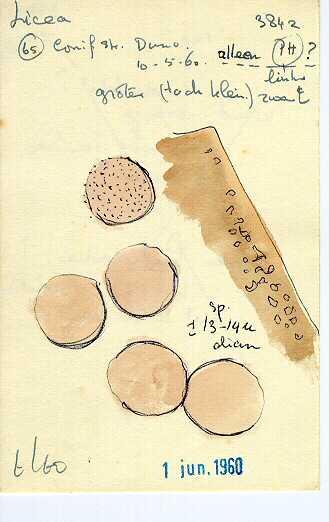 Licea 3842
(65) Conif. str. Duno.
10-5-60. alleen (PH)?
links
grōter (toch klein.) zwart
sp.
± 13-14 µ
diam
6/60
1 jun. 1960